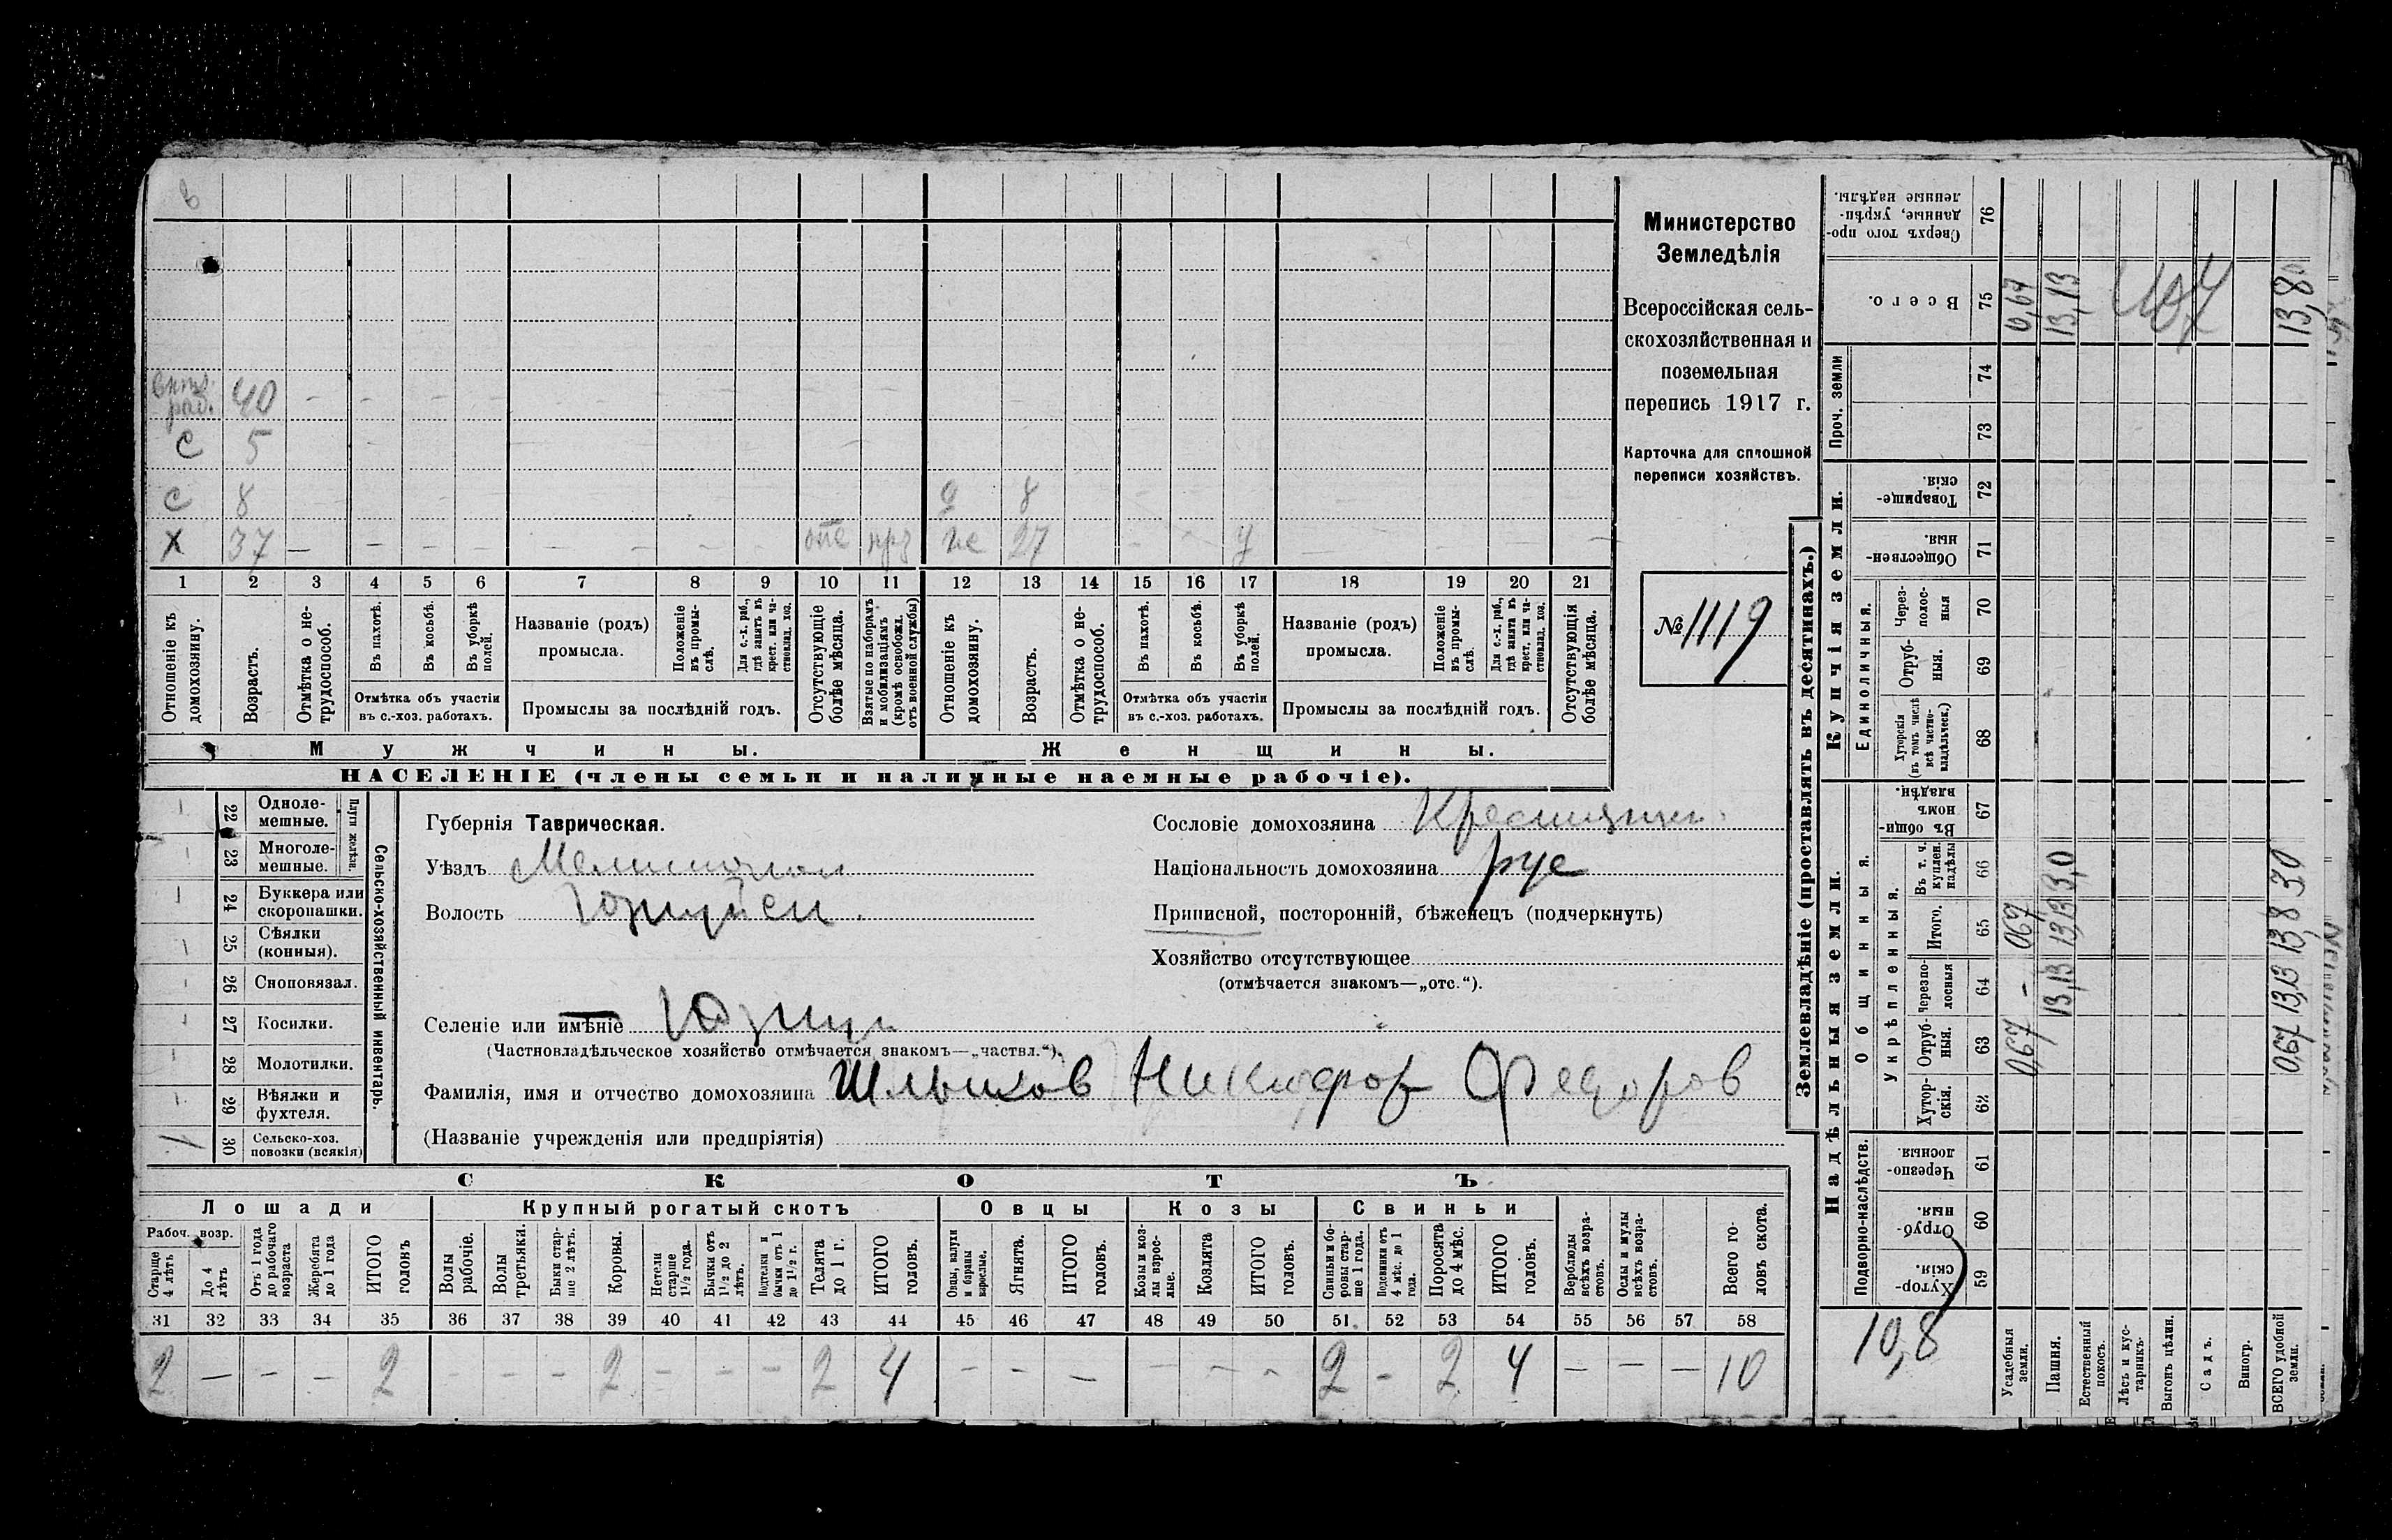 вптр.
раб. 40 - - - - - - -
С 5
С 8 9 8
Х 37 — — — — — — — — отс прз же 27 у
1 2 3 4 5 6 7 8 9 10 11 12 13 14 15 16 17 18 19 20 21
Отношеніе къ домохозяину.
Возрастъ.
Отмѣтка о не-трудоспособ.
Въ пахотѣ.
Въ косьбѣ.
Въ уборкѣ полей.
Отмѣтка объ участіи
въ с.-хоз. работахъ.
Названіе (родъ)
промысла.
Положеніе въ промы-слѣ.
Для с.-х. раб., гдѣ занятъ въ крест. или ча-стновлад. хоз.
Промыслы за послѣдній годъ.
Отсутствующіе болѣе мѣсяца.
Взятые по наборамъ и мобилизаціямъ (кромѣ освобожд. отъ военной службы)
Отношеніе къ домохозяину.
Возрастъ.
Отмѣтка о не-трудоспособ.
Въ пахотѣ.
Въ косьбѣ.
Въ уборкѣ полей.
Отмѣтка объ участіи
въ с.-хоз. работахъ.
Названіе (родъ)
промысла.
Положеніе въ промы-слѣ.
Для с.-х. раб., гдѣ занята въ крест. или ча-стновлад. хоз.
Промыслы за послѣдній годъ.
Отсутствующія болѣе мѣсяца.
Мужчины. Женщины.
НАСЕЛЕНІЕ (члены семьи и наличные наемные рабочіе).
Министерство
Земледѣлія
Всероссійская сель-
скохозяйственная и
поземельная
перепись 1917 г.
Карточка для сплошной
переписи хозяйствъ.
№ 1119
Сельско-хозяйственный инвентарь.
Плуги желѣзн.
22 Одноле-мешные.
23 Многоле-мешные.
24 Буккера или скоропашки.
25 Сѣялки (конныя).
26 Сноповязал.
27 Косилки.
28 Молотилки.
29 Вѣялки и фухтеля.
30 Сельско-хоз. повозки (всякія) 1
Губернія Таврическая.
Уѣздъ Мелитопол
Волость
Сословіе домохозяина Крестьянин.
Національность домохозяина рус
Приписной, посторонній, бѣженецъ (подчеркнуть)
Хозяйство отсутствующее
(отмѣчается знакомъ—„отс.“).
Селеніе или имѣніе
(Частновладѣльческое хозяйство отмѣчается знакомъ—„частвл.“).
Фамилія, имя и отчество домохозяина Шлыков Никифор Федоров
(Названіе учрежденія или предпріятія)
СКОТЪ
Лошади Крупный рогатый скотъ Овцы Козы Свиньи
Рабоч. возр.
Старше 4 лѣтъ
До 4 лѣтъ
Отъ 1 года до рабочаго возраста
Жеребята до 1 года
ИТОГО головъ
Волы рабочіе.
Волы третьяки.
Быки стар-ше 2 лѣтъ.
Коровы.
Нетели старше 1½ года.
Бычки отъ 1½ до 2 лѣтъ.
Подтелки и бычки отъ 1 до 1½ г.
Телята до 1 г.
ИТОГО головъ.
Овцы, валухи и бараны взрослые.
Ягнята.
ИТОГО головъ.
Козы и коз-лы взрос-лые.
Козлята
ИТОГО головъ.
Свиньи и бо-ровы стар-ше 1 года.
Подсвинки отъ 4 мѣс. до 1 года.
Поросята до 4 мѣс.
ИТОГО головъ.
Верблюды всѣхъ возра-стовъ.
Ослы и мулы всѣхъ возра-стовъ.
Всего го-ловъ скота.
31 32 33 34 35 36 37 38 39 40 41 42 43 44 45 46 47 48 49 50 51 52 53 54 55 56 57 58
2 — — — 2 - - - 2 - - - 2 4 - - - - - - 2 - 2 4 — — — 10
Землевладѣніе (проставлять въ десятинахъ.)
Надѣльныя земли. Купчія земли. Проч. земли
Подворно-наслѣдств.
Общинныя.
Укрѣпленныя.
Единоличныя.
Хутор-скія. 59
Отруб-ныя. 60
Черезпо-лосныя. 61
Хутор-скія. 62
Отруб-ныя. 63
Черезпо-лосныя 64
Итого. 65
Въ т. ч. куплен. надѣлы 66
Въ общин-номъ владѣн. 67
Хуторскія (въ томъ числѣ всѣ частно-владѣльческ.) 68
Отруб-ныя. 69
Через-полос-ныя 70
Обществен-ныя. 71
Товарище-скія. 72
73
74
Всего. 75
Сверхъ того про-данные, укрѣп-ленные надѣлы. 76
10,8
Усадебныя земли. 0,67 - 0,67 0,67
Пашня. 13,13 13,13 13,0 13,13
Естественный покосъ.
Лѣсъ и кус-тарникъ.
Выгонъ цѣлин.
Садъ.
Виногр.
ВСЕГО удобной земли. 0,67 13,13 13,8 30 13,80